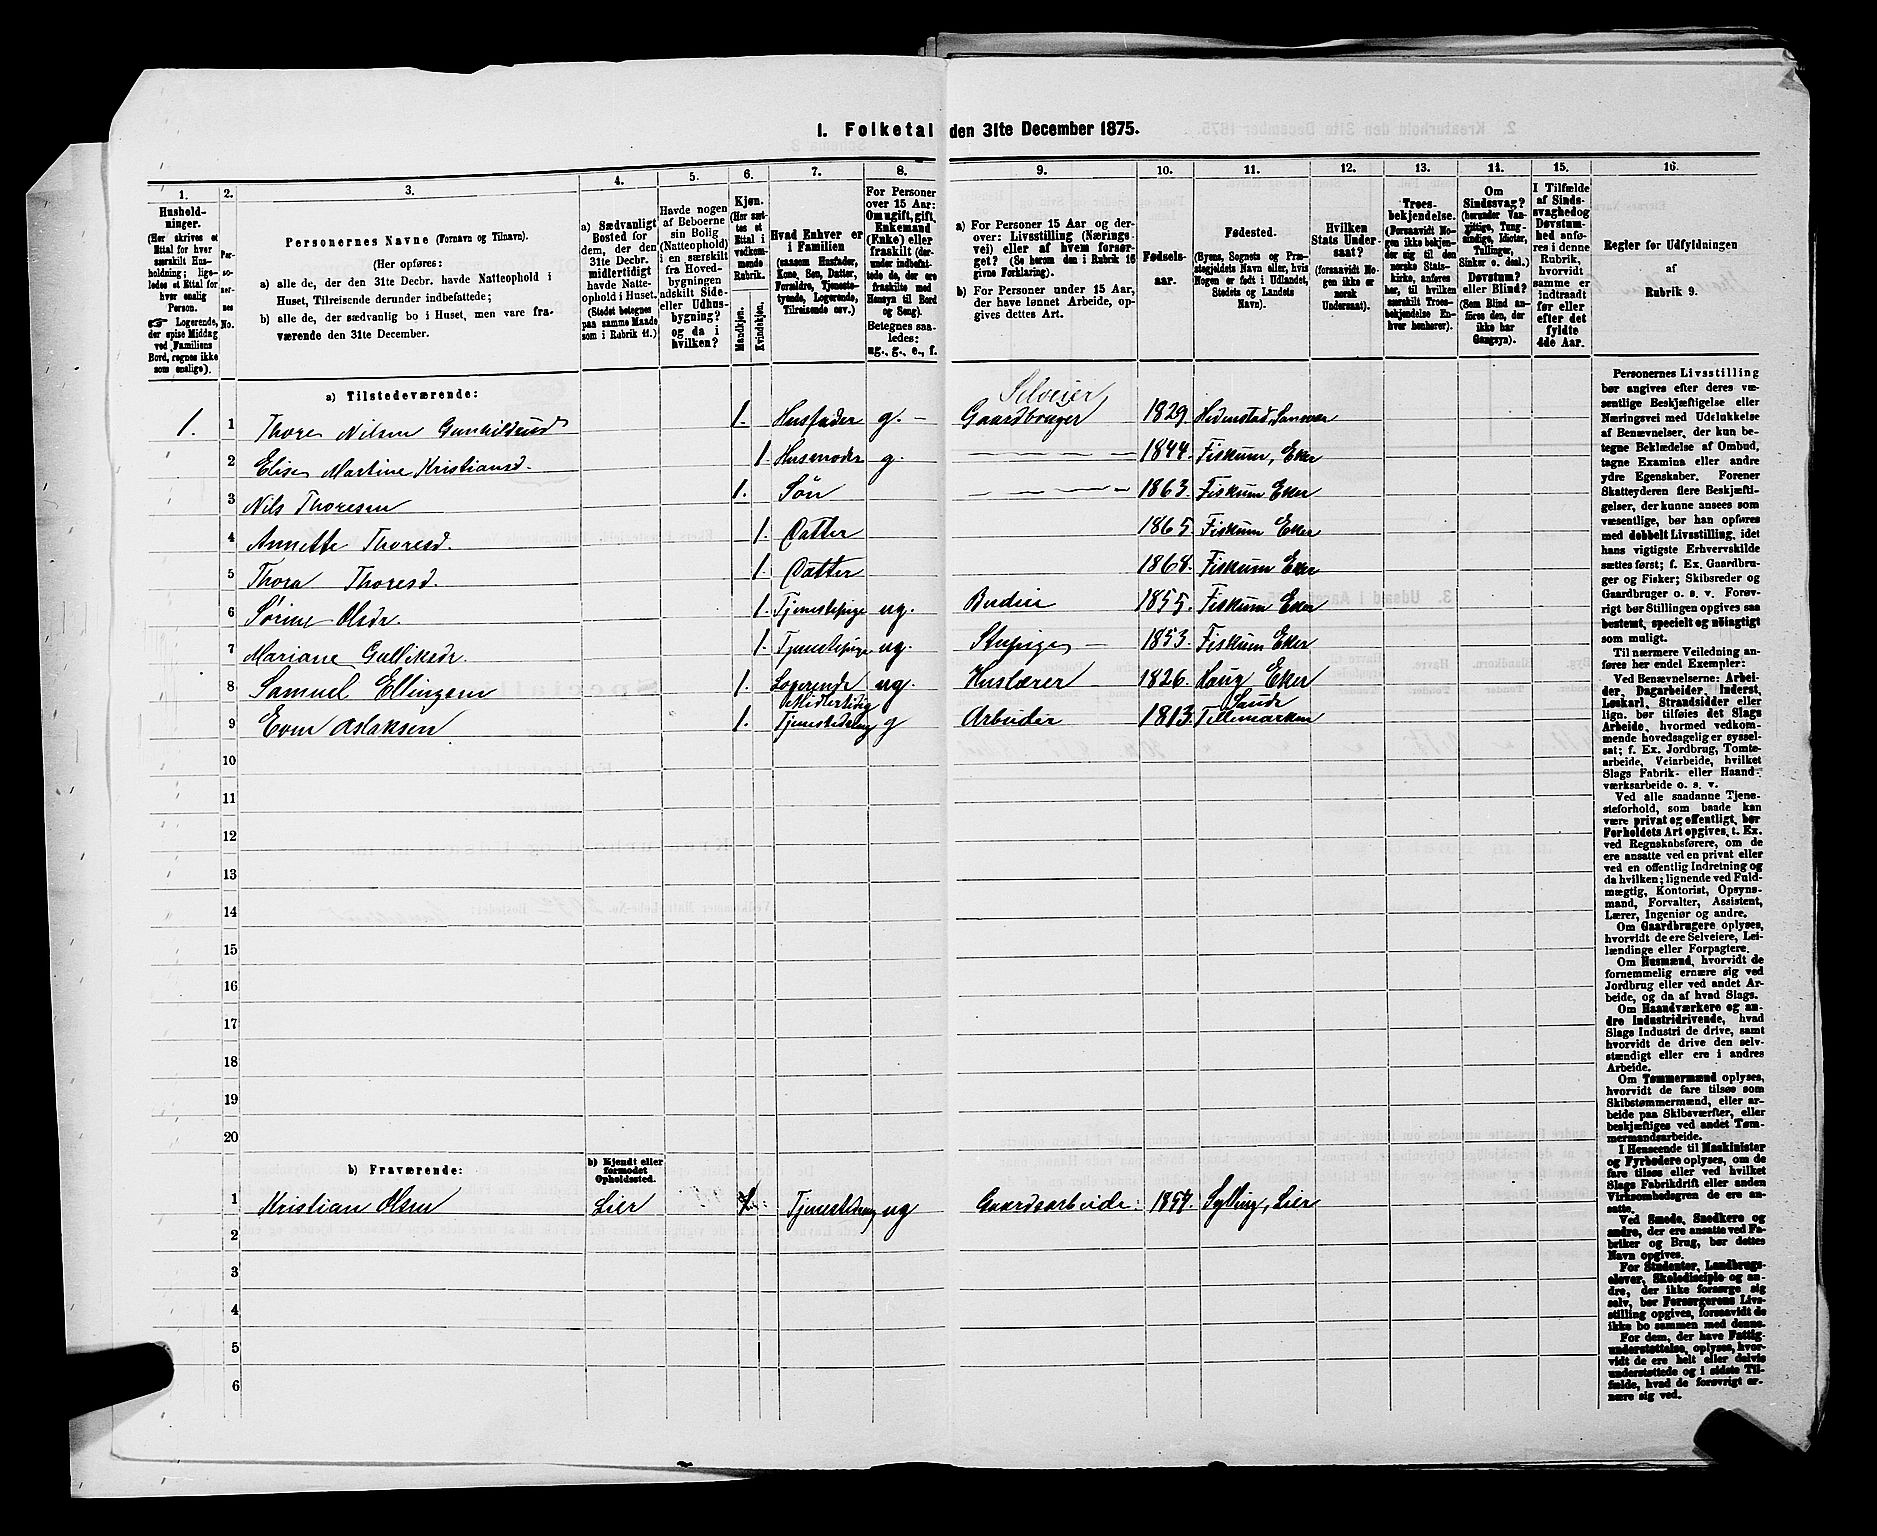 I. Folketal den 31te December 1875.
1.
Husholdninger.
(Her skrives et Ettal for hver særskilt Husholdning; ligeledes et Ettal for hver enslig Person.
☞ Logerende, der spise Middag ved Familiens Bord, regnes ikke som enslige).
2.
Personernes No.
3.
Personernes Navne (Fornavn og Tilnavn).
(Her opføres:
a) alle de, der den 31te Decbr. havde Natteophold i Huset, Tilreisende derunder indbefattede;
b) alle de, der sædvanlig bo i Huset, men vare fraværende den 31te December.
4.
a) Sædvanligt Bosted for dem, der den 31te Decbr. midlertidigt havde Natteophold i Huset.
(Stedet betegnes paa samme Maade som i Rubrik 11.)
5.
Havde nogen af Beboerne sin Bolig (Natteophold) i en særskilt fra Hovedbygningen adskilt Side- eller Udhusbygning? og da i hvilken?
6.
Kjøn.
(Her sættes et Ettal i vedkommende Rubrik.
Mandkjøn.
Kvindekjøn.
7.
Hvad Enhver er i Familien
(saasom Husfader, Kone, Søn, Datter, Forældre, Tjenestetyende, Logerende, Tilreisende osv.)
8.
For Personer over 15 Aar: Om ugift, gift, Enkemand (Enke) eller fraskilt (derunder indbefattede de, der ere fraskilte med Hensyn til Bord og Seng).
Betegnes saaledes: ug., g., e., f.
9.
a) For Personer 15 Aar og derover: Livsstilling (Næringsvei) eller af hvem forsørget? (Se herom den i Rubrik 16 givne Forklaring).
b) For Personer under 15 Aar, der have lønnet Arbeide, opgives dettes Art.
10.
Fødselsaar.
11.
Fødested.
(Byens, Sognets og Præstegjeldets Navn eller, hvis Nogen er født i Udlandet, Stedets og Landets Navn).
12.
Hvilken Stats Undersaat?
(forsaavidt Nogen ikke er norsk Undersaat).
13.
Troesbekjendelse.
(Forsaavidt Nogen ikke bekjender sig til den norske Statskirke, anføres her, til hvilken særskilt Troesbekjendelse Enhver henhører).
14.
Om Sindssvag? (herunder Vanvittige, Tungsindige, Idioter, Tullinger, Sinker o. desl.) Døvstum? eller Blind? (Som Blind anføres den, der ikke har Gangsyn).
15.
I Tilfælde af Sindssvaghed og Døvstumhed anføres i denne Rubrik, hvorvidt samme er indtraadt før eller efter det fyldte 4de Aar.
16.
Regler for Udfyldningen
af
Rubrik 9.
a) Tilstedeværende:
Selveier
1. 1 Thore Nilsen Gunhildrud 1. Husfader g. — Gaardbruger 1829 Hedenstad, Sansvær
2 Elise Martine Kristiansd. 1. Husmoder g. 1844. Fiskum, Eker
3 Nils Thoresen 1. Søn 1863. Fiskum Eker
4 Annette Thoresd. 1. Datter 1865 Fiskum Eker
5 Thora Thoresd. 1. Datter 1868. Fiskum Eker
6 Sørine Olsdr. 1. Tjenestepige ug. Budeie 1855. Fiskum Eker
7 Mariane Gulliksdr. 1. Tjenestepige ug. Stupige 1853. Fiskum Eker
8 Samuel Ellingsen 1. Logerende ug. Huslærer 1826. Houg Eker
Midlertidig Saude
9 Even Aslaksen 1. Tjenestedreng g Arbeider 1813. Tellemarken
10
11
12
13
14
15
16
17
18
19
20
b) Fraværende:
b) Kjendt eller formodet Opholdssted.
1 Kristian Olsen Lier Tjenestedreng ug Gaardsarbeide: 1857. Sylling, Lier
2
3
4
5
6
Personernes Livsstilling bør angives efter deres væsentlige Beskjæftigelse eller Næringsvei med Udelukkelse af Benævnelser, der kun betegne Beklædelse af Ombud, tagne Examina eller andre ydre Egenskaber. Forener Skatteyderen flere Beskjæftigelser, der kunne ansees som væsentlige, bør han opføres med dobbelt Livsstilling, idet hans vigtigste Erhvervskilde sættes først; f. Ex. Gaardbruger og Fisker; Skibsreder og Gaardbruger o. s. v. Forøvrigt bør Stillingen opgives saa bestemt, specielt og nøiagtigt som muligt.
Til nærmere Veiledning anføres her endel Exempler:
Ved Benævnelserne: Arbeider, Dagarbeider, Inderst, Løskarl, Strandsidder eller lign. bør tilføies det Slags Arbeide, hvormed vedkommende hovedsagelig er sysselsat; f. Ex. Jordbrug, Tomtearbeide, Veiarbeide, hvilket Slags Fabrik- eller Haandværksarbeide o. s. v.
Ved alle saadanne Tjenesteforhold, som baade kan være privat og offentligt, bør Forholdets Art opgives, t. Ex. ved Regnskabsførere, om de ere ansatte ved en privat eller ved en offentlig Indretning og da hvilken; lignende ved Fuldmægtig, Kontorist, Opsynsmand, Forvalter, Assistent, Lærer, Ingeniør og andre.
Om Gaardbrugere oplyses, hvorvidt de ere Selveiere, Leilændinge eller Forpagtere.
Om Husmænd, hvorvidt de fornemmelig ernære sig ved Jordbrug eller ved andet Arbeide, og da af hvad Slags.
Om Haandværkere og andre Industridrivende, hvad Slags Industri de drive, samt hvorvidt de drive den selvstændigt eller ere i andres Arbeide.
Om Tømmermænd oplyses, hvorvidt de fare tilsøs som Skibstømmermænd, eller arbeide paa Skibsværfter, eller beskjæftiges ved andet Tømmermandsarbeide.
I Henseende til Maskinister og Fyrbødere oplyses, om de fare tilsøs eller ved hvilket Slags Fabrikdrift eller anden Virksomhedsgren de ere ansatte.
Ved Smede, Snedkere og andre, der ere ansatte ved Fabriker og Brug, bør dettes Navn opgives.
For Studenter, Landbrugselever, Skoledisciple og andre, der ikke forsørge sig selv, bør Forsørgerens Livsstilling opgives, forsaavidt de ikke bo sammen med denne.
For dem, der have Fattigunderstøttelse, oplyses, hvorvidt de ere helt eller delvis understøttede og i sidste Tilfælde, hvad de forøvrigt ernære sig ved.